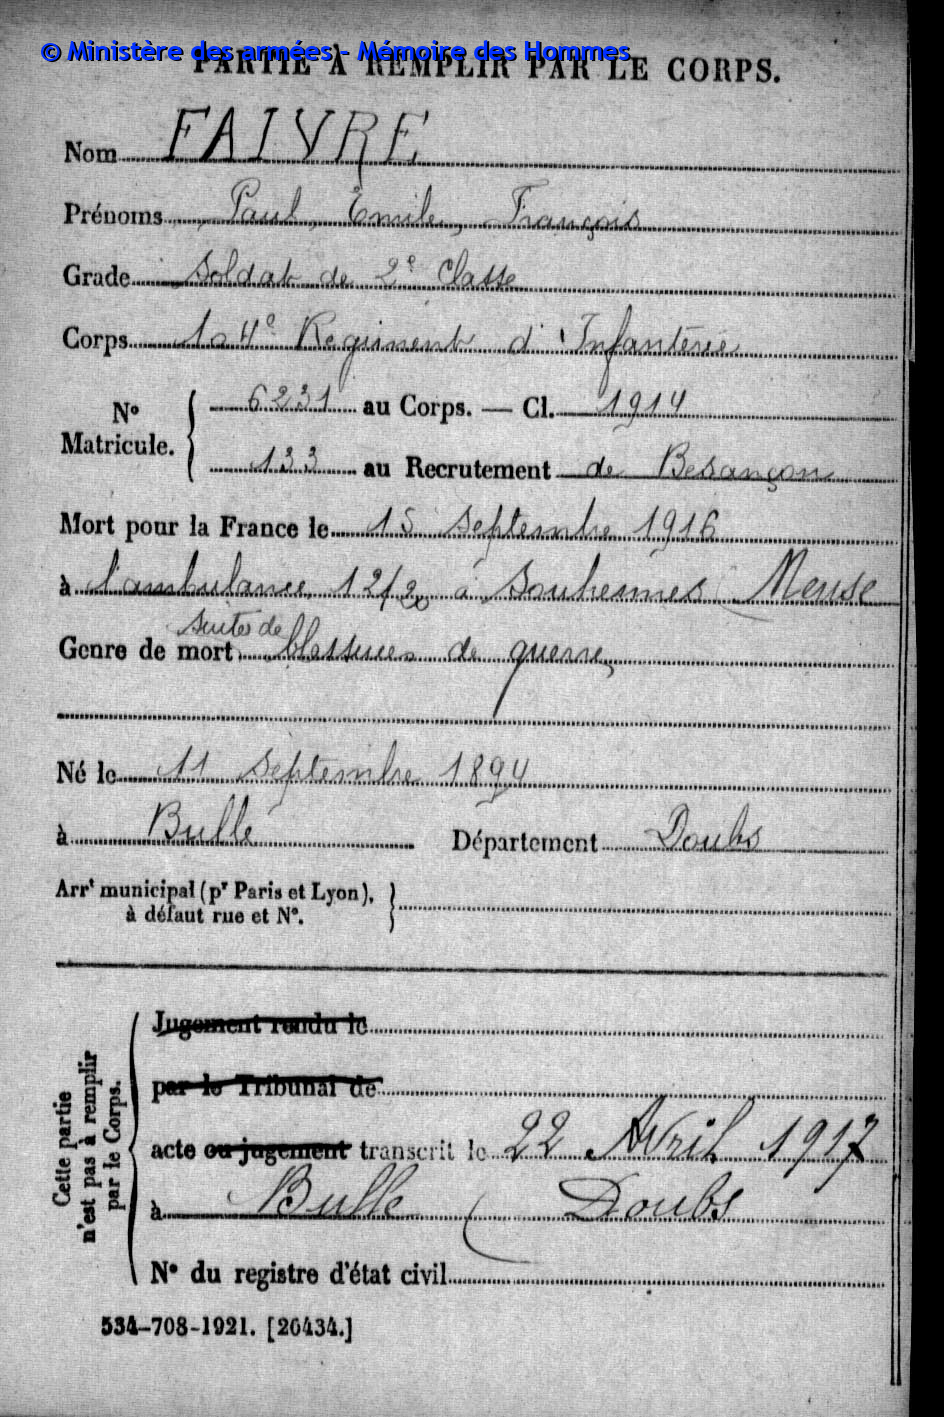 © Ministère des armées - Mémoire des Hommes
PARTIE À REMPLIR PAR LE CORPS.
Nom FAIVRE
Prénoms Paul, Emile, François
Grade Soldat de 2e Classe
Corps 104e Regiment d'Infanterie
No Matricule. 6231 au Corps. — Cl. 1914
133 au Recrutement de Besançon
Mort pour la France le 15 Septembre 1916
à l'ambulance 12/20 à Souhesmes (Meuse
suites de
Genre de mort blessures de guerre,
Né le 11 Septembre 1894
à Bulle Département Doubs
Arrt municipal (pr Paris et Lyon),
à défaut rue et No.
Cette partie
n'est pas à remplir
par le Corps.
Jugement rendu le
par le Tribunal de
acte ou jugement transcrit le 22 Avril 1917
à Bulle (Doubs
No du registre d'état civil
534-708-1921. [26434.]